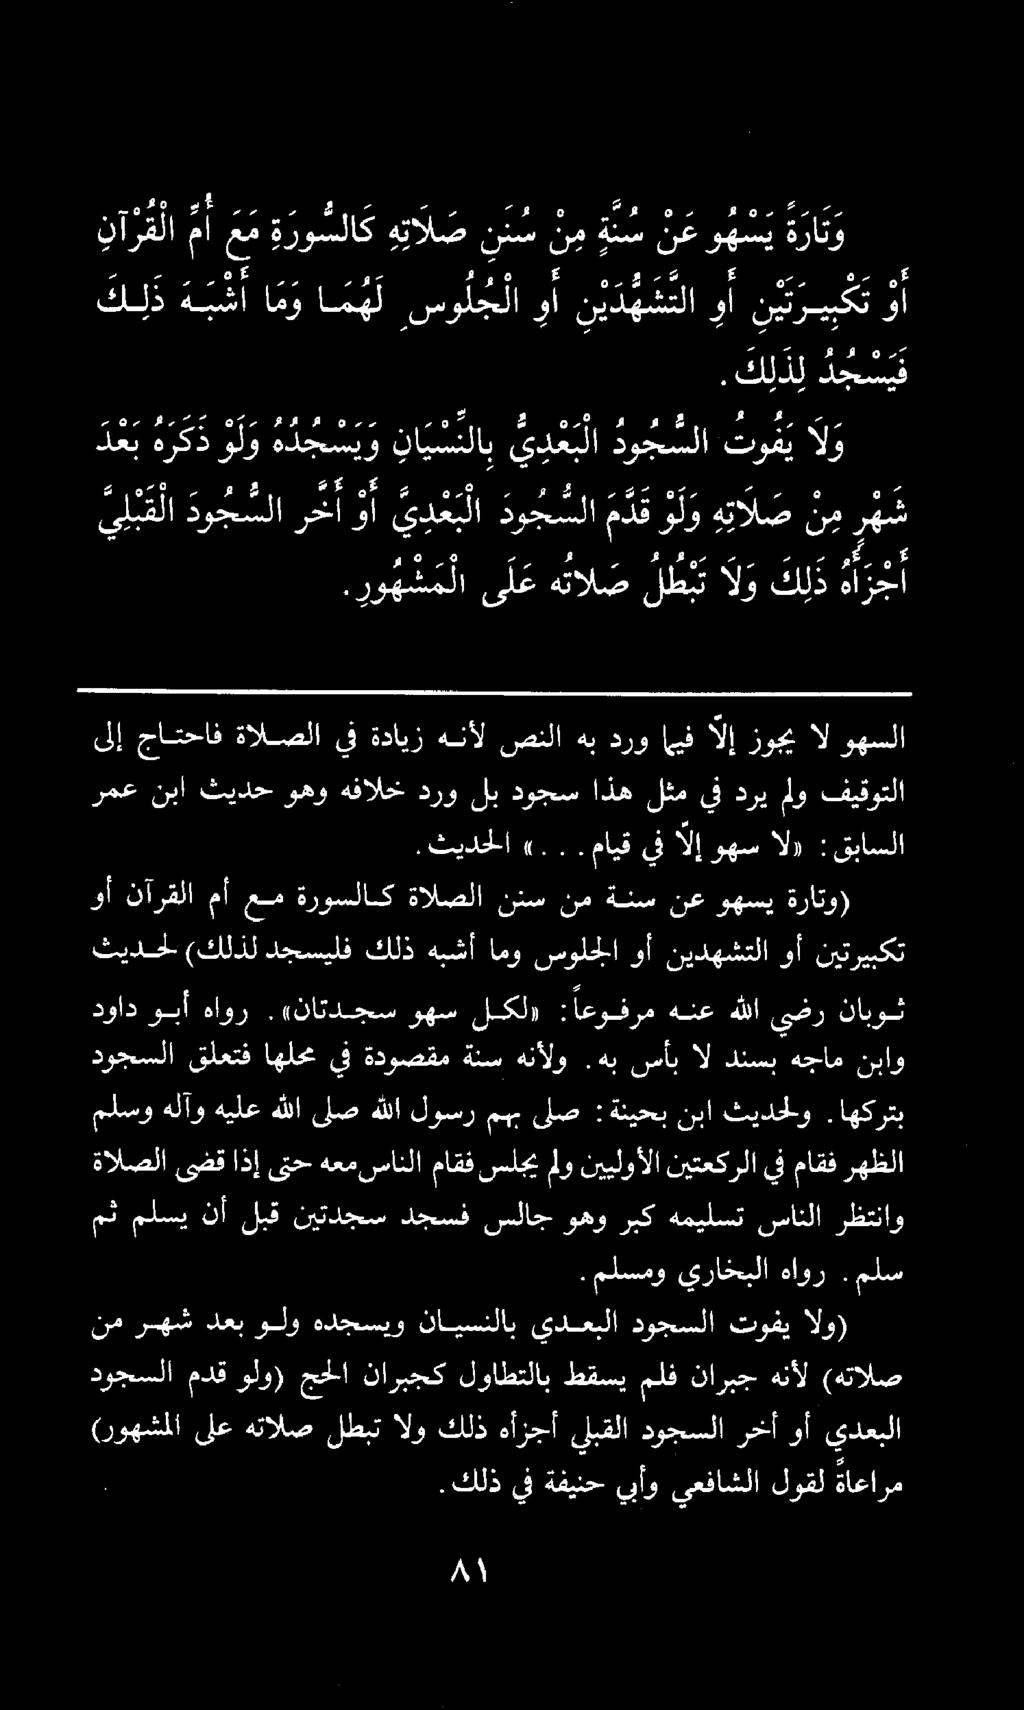 وَتَارَةً يَسْهُو عَنْ سُنَّةٍ مِنْ سُنَنِ صَلَاتِهِ كَالسُّورَةِ مَعَ أُمِّ الْقُرْآنِ
أَوْ تَكْبِيرَتَيْنِ أَوِ التَّشَهُّدَيْنِ أَوِ الْجُلُوسِ لَهُمَا وَمَا أَشْبَهَ ذَلِكَ
فَيَسْجُدُ لِذَلِكَ.
وَلَا يَفُوتُ السُّجُودُ الْبَعْدِيُّ بِالنِّسْيَانِ وَيَسْجُدُهُ وَلَوْ ذَكَرَهُ بَعْدَ
شَهْرٍ مِنْ صَلَاتِهِ وَلَوْ قَدَّمَ السُّجُودَ الْبَعْدِيَّ أَوْ أَخَّرَ السُّجُودَ الْقَبْلِيَّ
أَجْزَأَهُ ذَلِكَ وَلَا تَبْطُلُ صَلَاتُه عَلَى الْمَشْهُورِ.
السهو لا يجوز إلّا فيما ورد به النص لأنه زيادة في الصلاة فاحتاج إلى
التوقيف ولم يرد في مثل هذا سجود بل ورد خلافه وهو حديث ابن عمر
السابق: «لا سهو إلّا في قيام...» الحديث.
(وتارة يسهو عن سنة من سنن الصلاة كالسورة مع أم القرآن أو
تكبيرتين أو التشهدين أو الجلوس وما أشبه ذلك فليسجد لذلك) لحديث
ثوبان رضي الله عنه مرفوعاً: «لكل سهو سجدتان». رواه أبو داود
وابن ماجه بسند لا بأس به. ولأنه سنة مقصودة في محلها فتعلق السجود
بتركها. ولحديث ابن بحينة: صلى بهم رسول الله صلى الله عليه وآله وسلم
الظهر فقام في الركعتين الأوليين ولم يجلس فقام الناس معه حتى إذا قضى الصلاة
وانتظر الناس تسليمه كبر وهو جالس فسجد سجدتين قبل أن يسلم ثم
سلم. رواه البخاري ومسلم.
(ولا يفوت السجود البعدي بالنسيان ويسجده ولو بعد شهر من
صلاته) لأنه جبران فلم يسقط بالتطاول كجبران الحج (ولو قدم السجود
البعدي أو أخر السجود القبلي أجزأه ذلك ولا تبطل صلاته على المشهور)
مراعاةً لقول الشافعي وأبي حنيفة في ذلك.
٨١